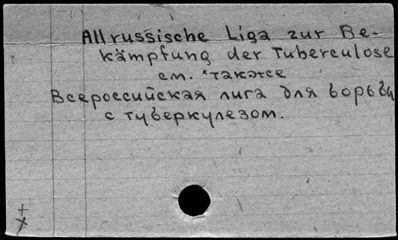 Allrussische Liga zur Be-
kämpfung der Tuberculose
см. также
Всероссийская лига для борьбы
с туберкулезом.